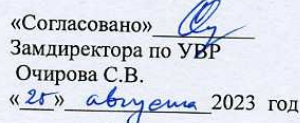 «Согласовано»
Замдиректора по УВР
Очирова С.В.
«25» августа 2023 год